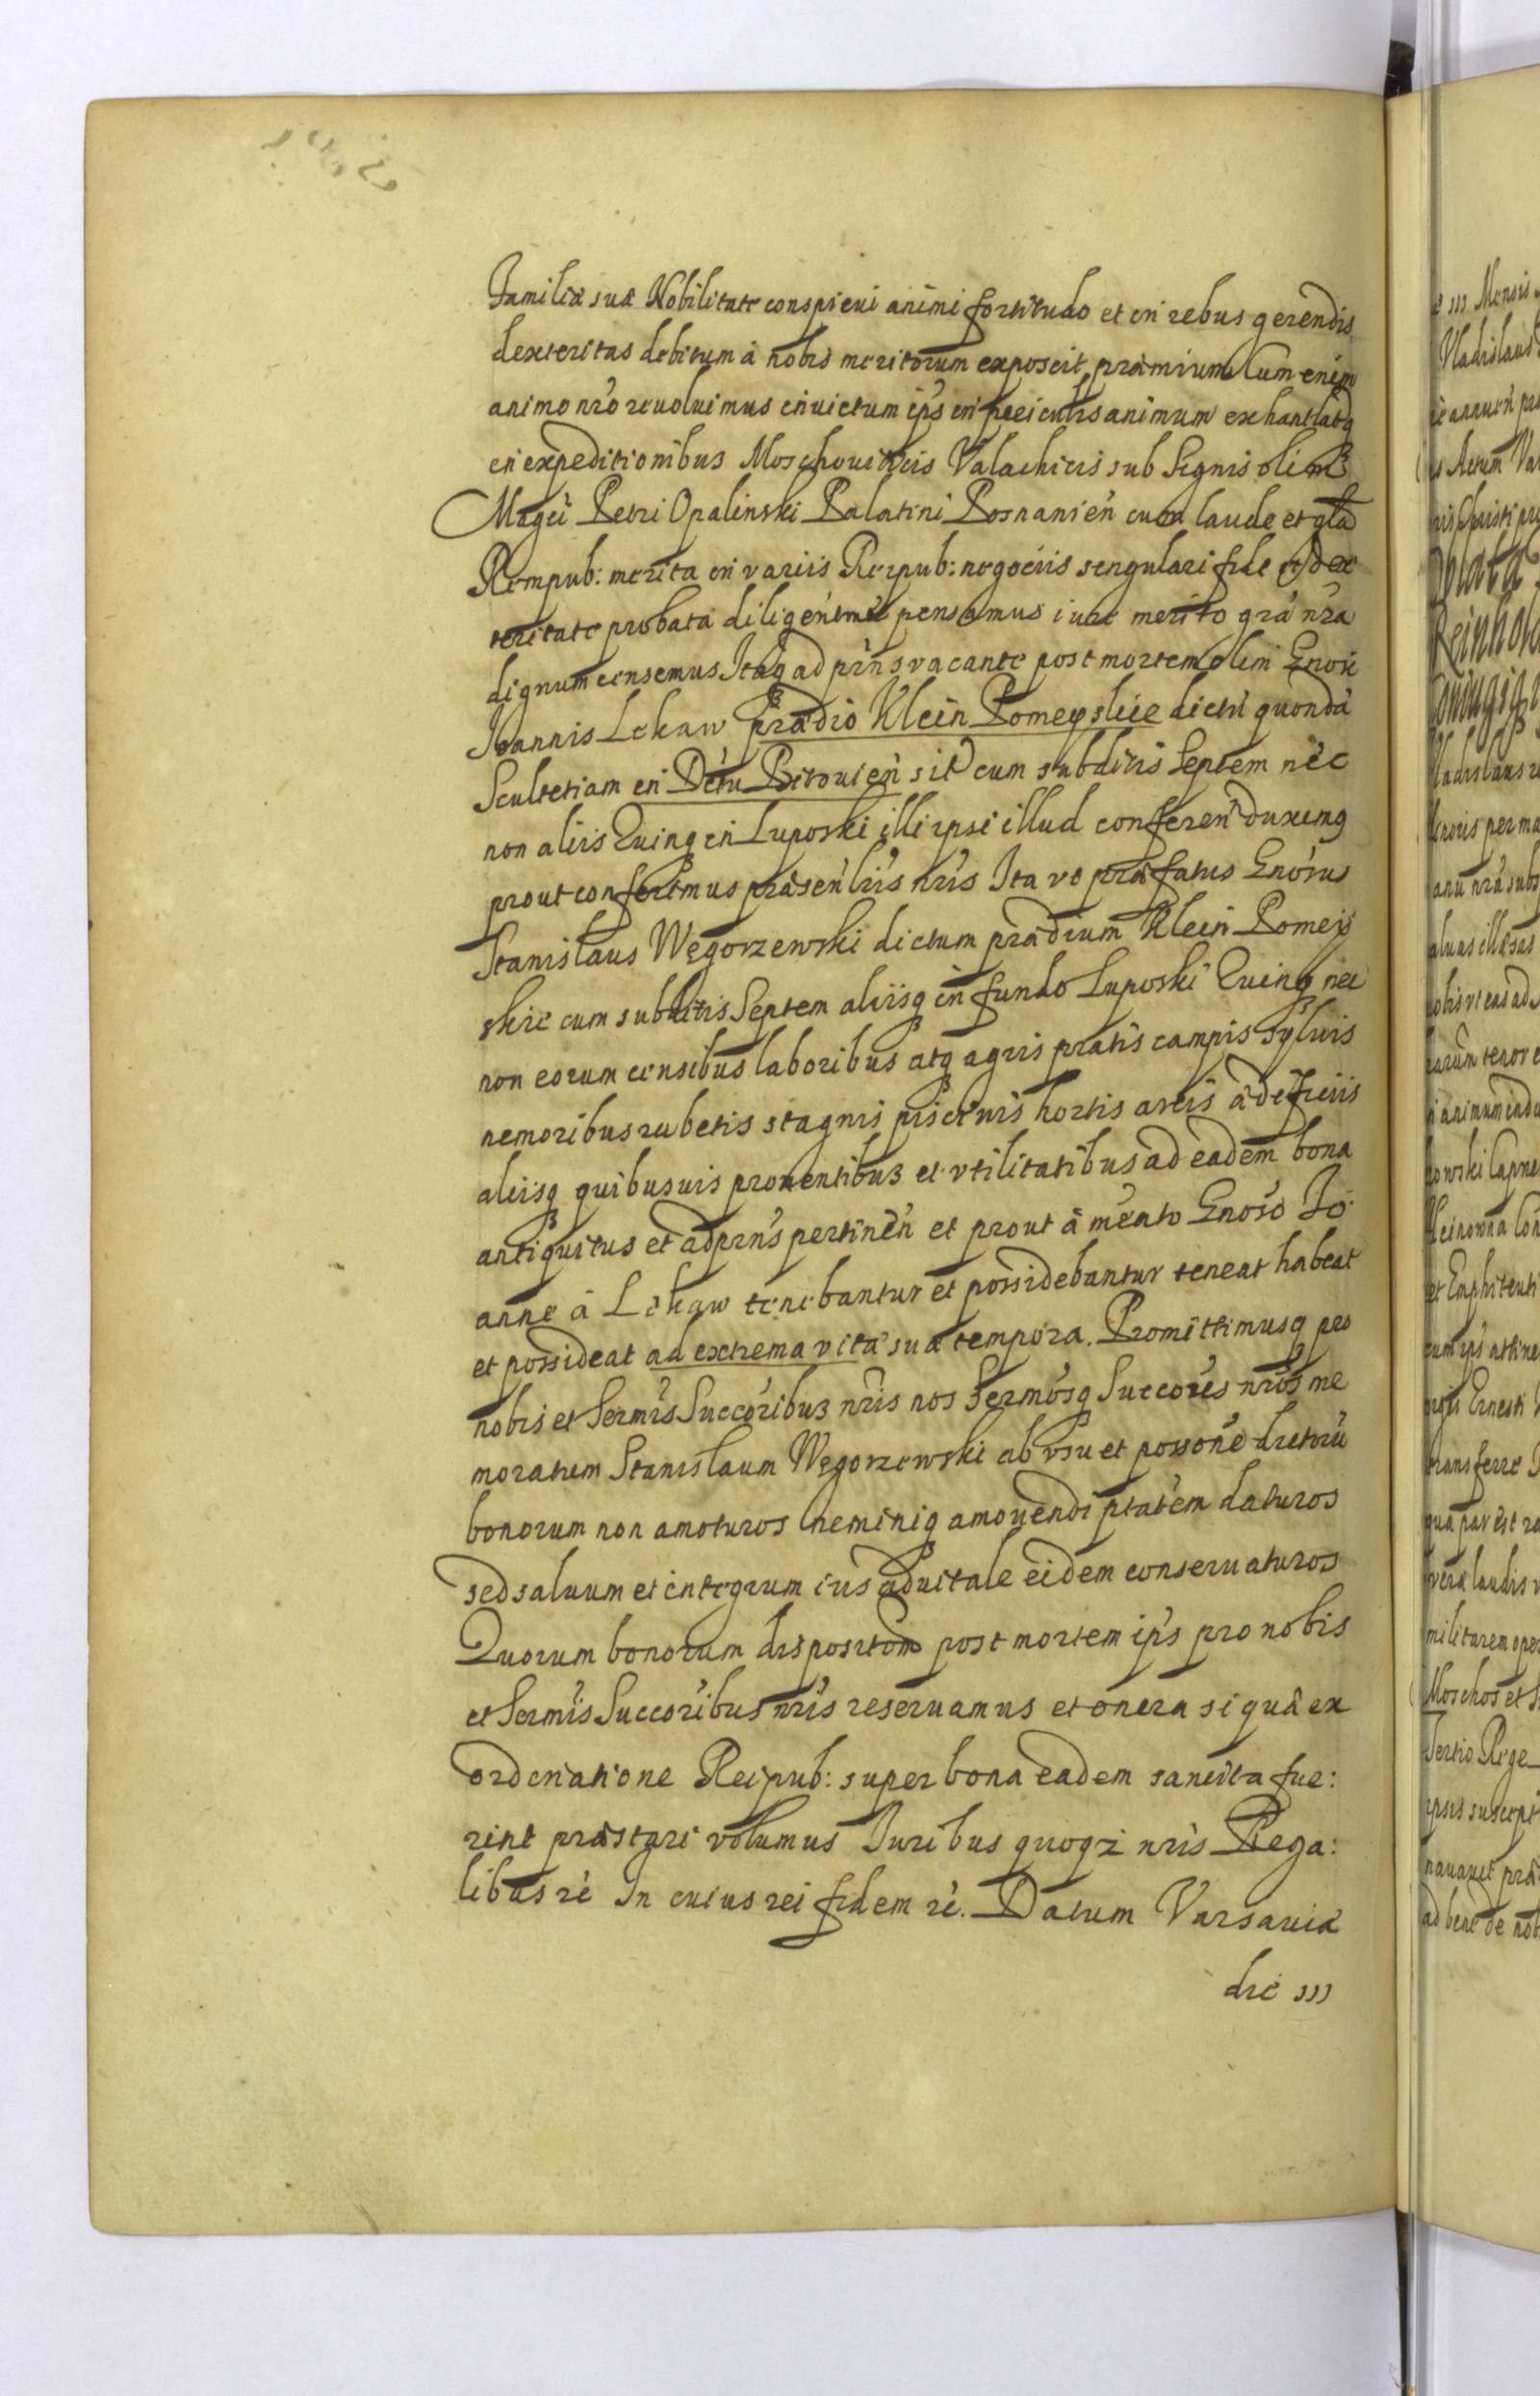 Familiæ suæ Nobilitate conspicui animi fortitudo et in rebus gerendis
dexteritas debitum à nobis meritorum exposcit præmium Cum enim
animo nrō reuoluimus inuictum ip̄s in periculis animum exhantlatq
in expeditionibus Moschouiticis Valachicis sub Signis olim
Magci Petri Opalinski Palatini Posnanień cum laude et glā
Rempub: merita in variis Reipub: negociis singulari fide et dex
teritate probata diligentius pensamus iure merito grā nr̄a
dignum censemus Itaq ad prn̄s vacante post mortem olim Gnosi
Ioannis Lekaw prædio Klein Pomeyskie dicti quondā
Scultetiam in Dctu Bitouień sit cum subditis Septem nec
non aliis Quinq in Luposki illi ipsi illud conferen duximq
prout conferimus præsen liīs nr̄is Ita vt præfatus Gnosus
Stanislaus Węgorzewski dictum prædium Klein Pomeÿs
skie cum subditis Septem aliisq in fundo Luposki Quinq nec
non eorum censibus laboribus atq agris pratis campis syluis
nemoribus rubetis stagnis piscinis hortis areis ædificiis
aliisq quibusuis prouentibus et vtilitatibus ad eadem bona
antiquitus et ad prn̄s pertineń et prout à mēnto Gnoso Jo
anne à Lekaw tenebantur et possidebantur teneat habeat
et possideat ad extrema vitæ suæ tempora. Promittimusq pro
nobis et Sermis Succoribus nr̄is nos Sermosq Succores nr̄os me
moratum Stanislaum Węgorzewski ab vsu et possone dictorū
bonorum non amoturos neminiq amouendi ptatem daturos
sed saluum et integrum ius aduitale eidem conseruaturos
Quorum bonorum dispositom post mortem ip̄s pro nobis
et Sermis Succoribus nr̄is reseruamus et onera si quâ ex
ordinatione Reipub: super bona eadem sancita fue:
rint præstari volumus Iuribus quoqz nr̄is Rega:
libus rè In cuius rei fidem rè. Datum Varsauiæ
die III